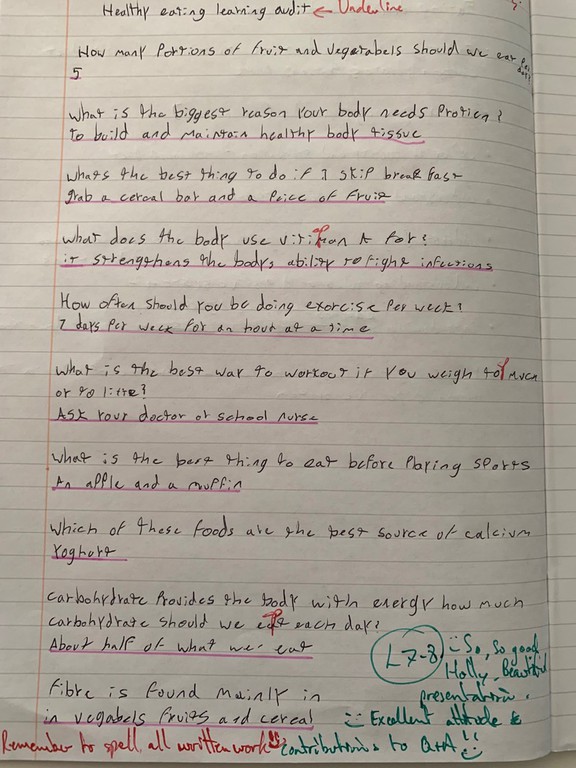 Healthy eating learning audit ← Underline
How many Portions of fruit and vegetabels should we eat per day?
5
What is the biggest reason your body needs Protien?
to build and maintain healthy body tissue
whats the best thing to do if I skip breakfast
grab a cereal bar and a Peice of fruit
what does the body use for?
it strengthens the bodys ability to fight infections
How often should you be doing exorcise Per week?
7 days Per week for an hour at a time
What is the best way to workout if you weigh to much
or to little?
Ask your doctor or school nurse
what is the best thing to eat before Playing sports
An apple and a muffin
Which of these foods are the best source of calcium
Yoghurt
carbohydrate Provides the body with energy how much
carbohydrate should we eat each day?
About half of what we eat
L7-8
:) So, so good
Holly. Beautiful
presentation.
Fibre is found mainly in
in vegabels fruits and cereal
:) Excellent attitude &
contributions to Q+A!! :)
Remember to spell all written work